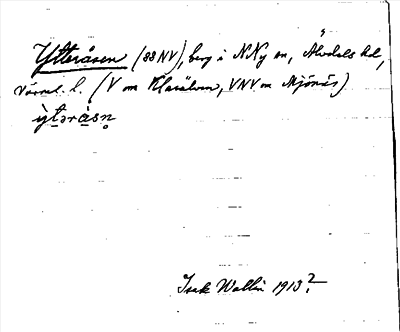 Ytteråsen (88 NV), berg i N Ny sn, Älvdals hd,
Värml. l. (V om Klarälven, VNV om Mjönäs)
ỳtəràsn̥
Isak Wallin 1913?